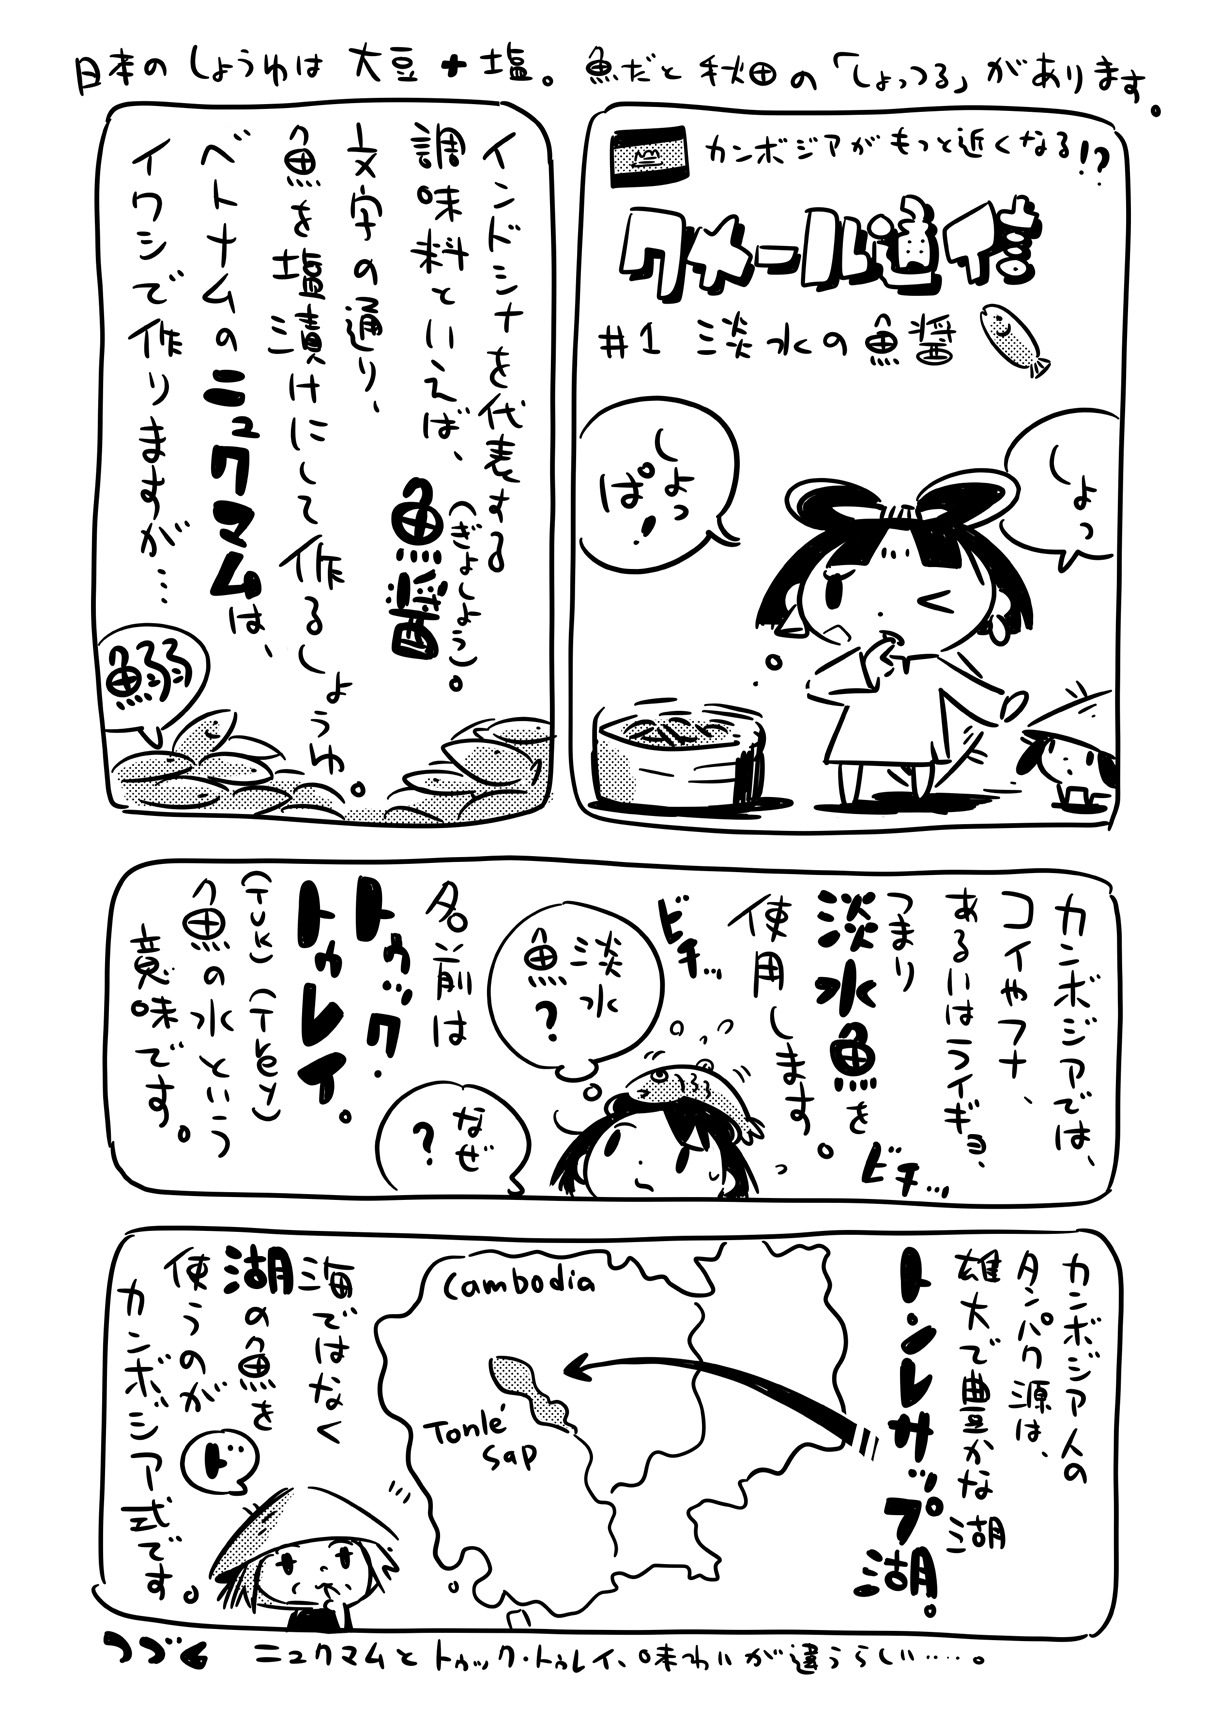 日本のしょうゆは 大豆+塩。 魚だと 秋田の「しょっつる」があります。
カンボジアがもっと近くなる!?
クメール通信
#1 淡水の魚醤
しょっ
しょっ
ぱ!
インドシナを代表する
調味料といえば、
魚醤(ぎょしょう)。
文字の通り、
魚を塩漬けにして作るしょうゆ。
ベトナムのニュクマムは、
イワシで作りますが…
鰯
カンボジアでは、
コイやフナ、
あるいはライギョ、
つまり
淡水魚を
使用します。
ビチ…
ビチ…
淡水
魚?
なぜ
?
名前は
トゥック・
トゥレイ。
(Tuk) (Trey)
魚の水という
意味です。
カンボジア人の
タンパク源は、
雄大で豊かな湖
トンレサップ湖。
Cambodia
Tonlé
Sap
海ではなく
湖の魚を
使うのが
カンボジア式です。
ト…
つづく
ニュクマムとトゥック・トゥレイ、味わいが違うらしい……。